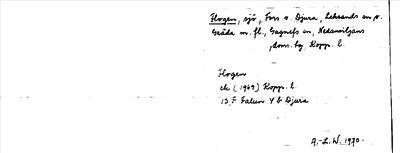 Hogen, sjö, Fors o. Djura, Leksands sn o.
Gråda m. fl., Gagnefs sn, Nedansiljans
doms. hg, Kopp. l.
Hogen
ek (1969) Kopp. l.
13 F Falun 4 b Djura
A.-L. W. 1970.